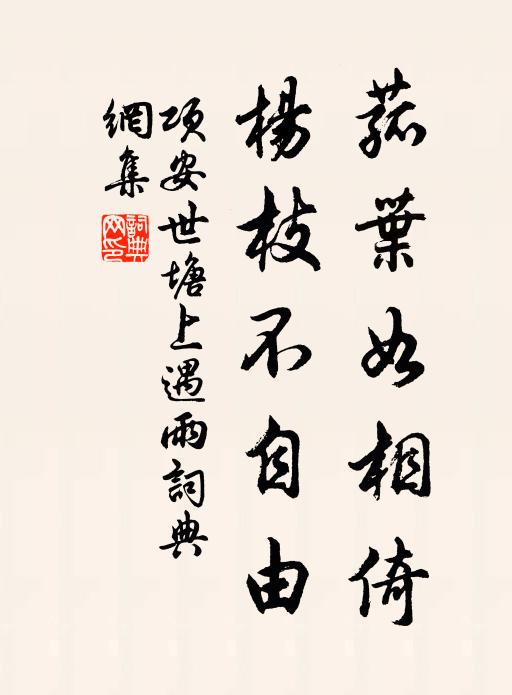 菰葉如相倚
楊枝不自由
項安世塘上遇雨詞典
網集
詞典
網印